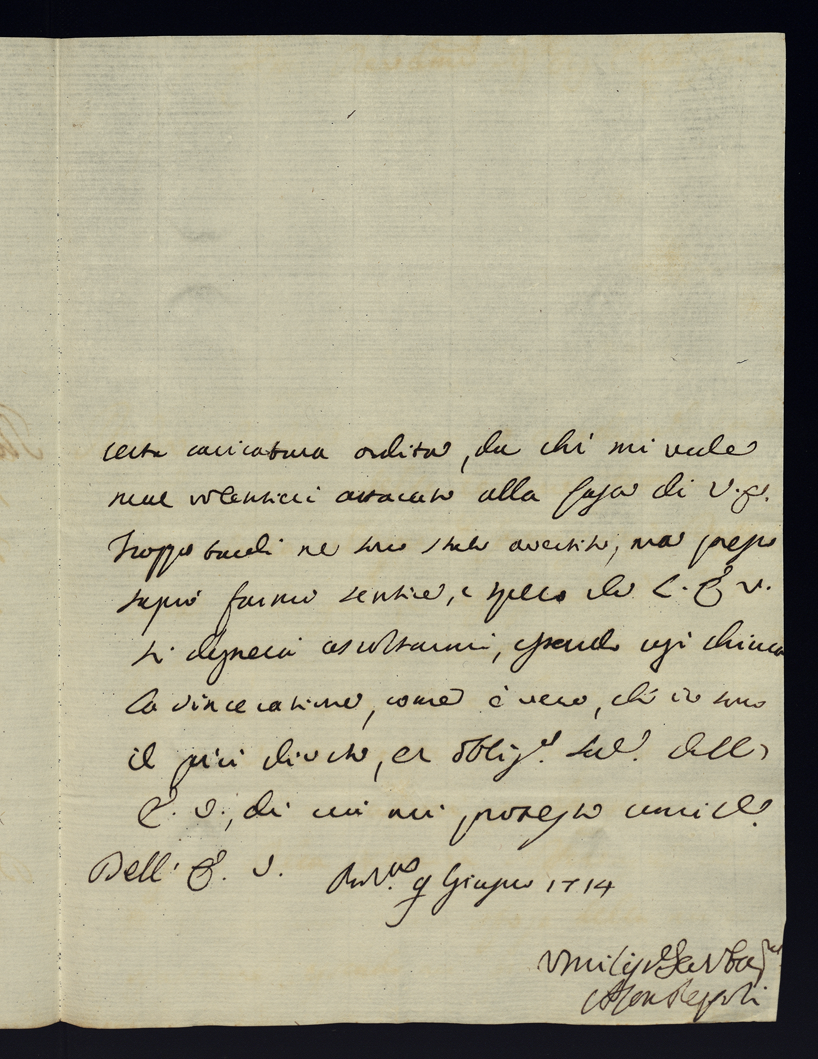 certa caricatura ordita, da chi mi vede
mal volentieri attacato alla Casa di V. E.
Troppo tardi ne sono stato avertito, ma presto
sapró farmi sentire, e spero che l'E. V.
si degnerá ascoltarmi, essendo cosi chiara
la sincerazione, come è vero, che io sono
il piú divoto, et oblig.º Ser.e dell'
E. V., di cui mi protesto umil.e
Dell' E. V. 9 Giugno 1714